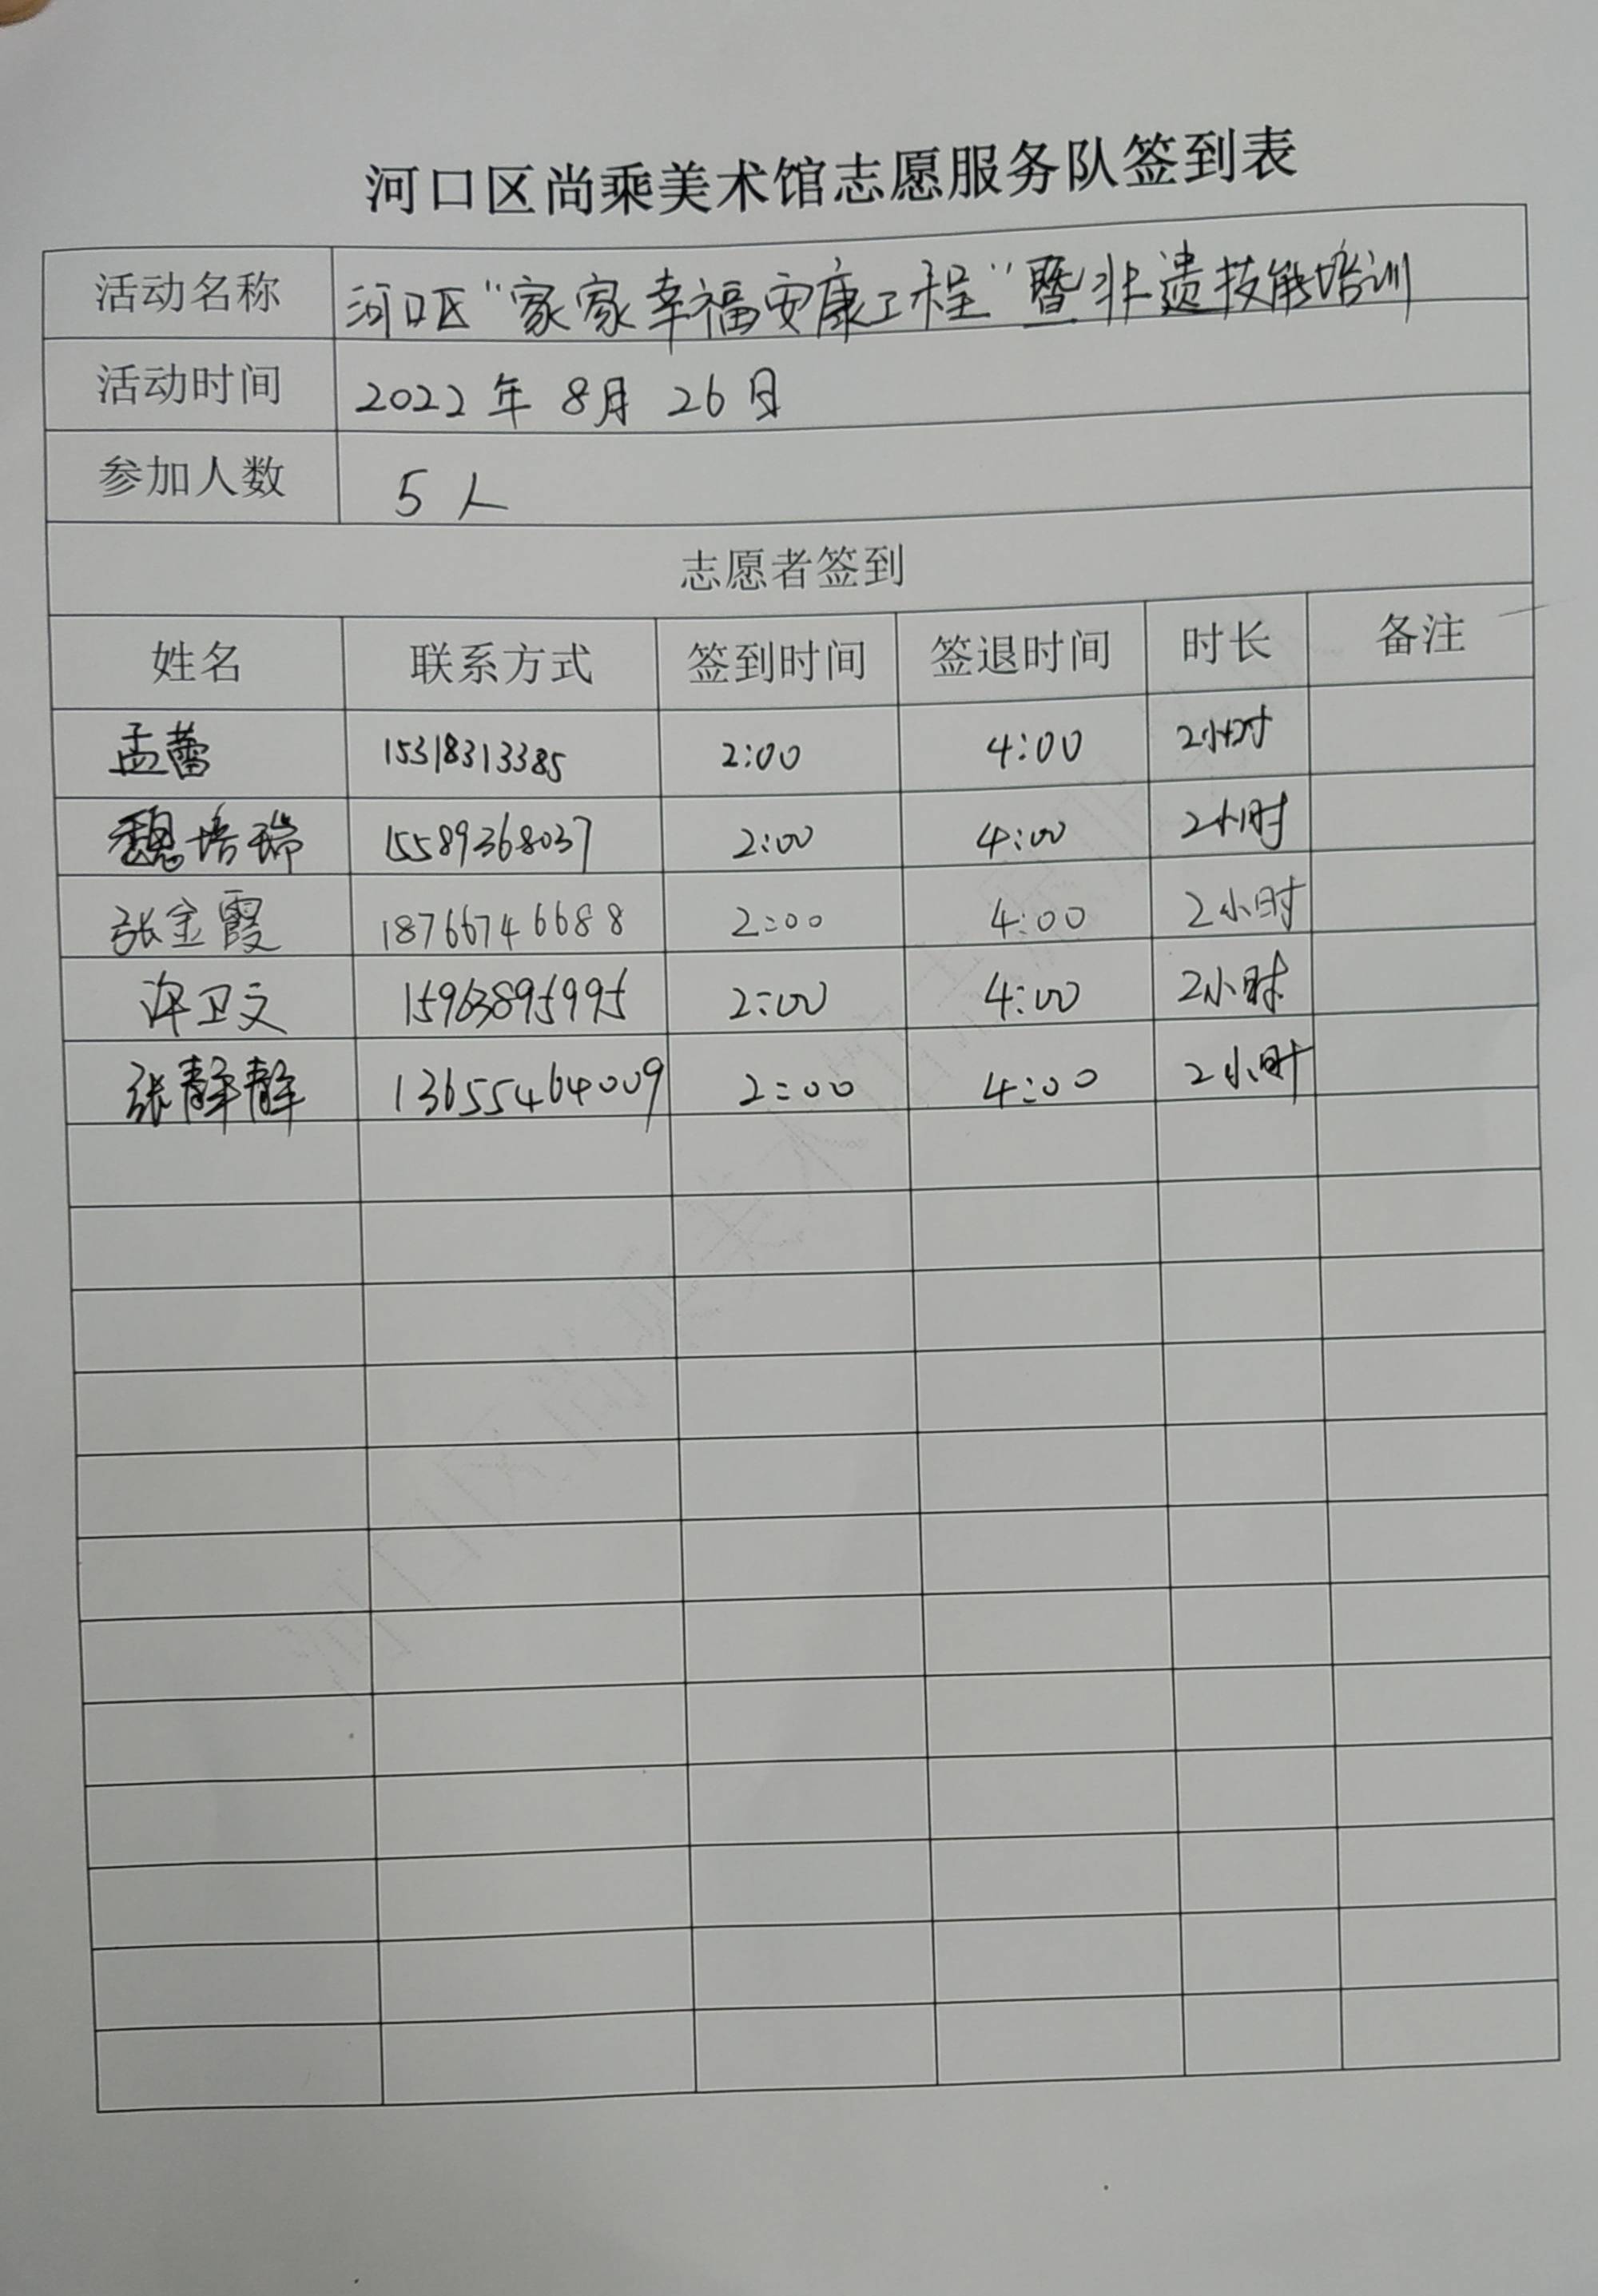 河口区尚乘美术馆志愿服务队签到表
活动名称 河口区“家家幸福安康工程”暨非遗技能培训
活动时间 2022年 8月 26日
参加人数 5人
志愿者签到
姓名 联系方式 签到时间 签退时间 时长 备注
孟蕾 15318313385 2:00 4:00 2小时
魏培瑞 15589368037 2:00 4:00 2小时
张金霞 18766746688 2:00 4:00 2小时
许卫文 15963895995 2:00 4:00 2小时
张静静 13655464009 2:00 4:00 2小时